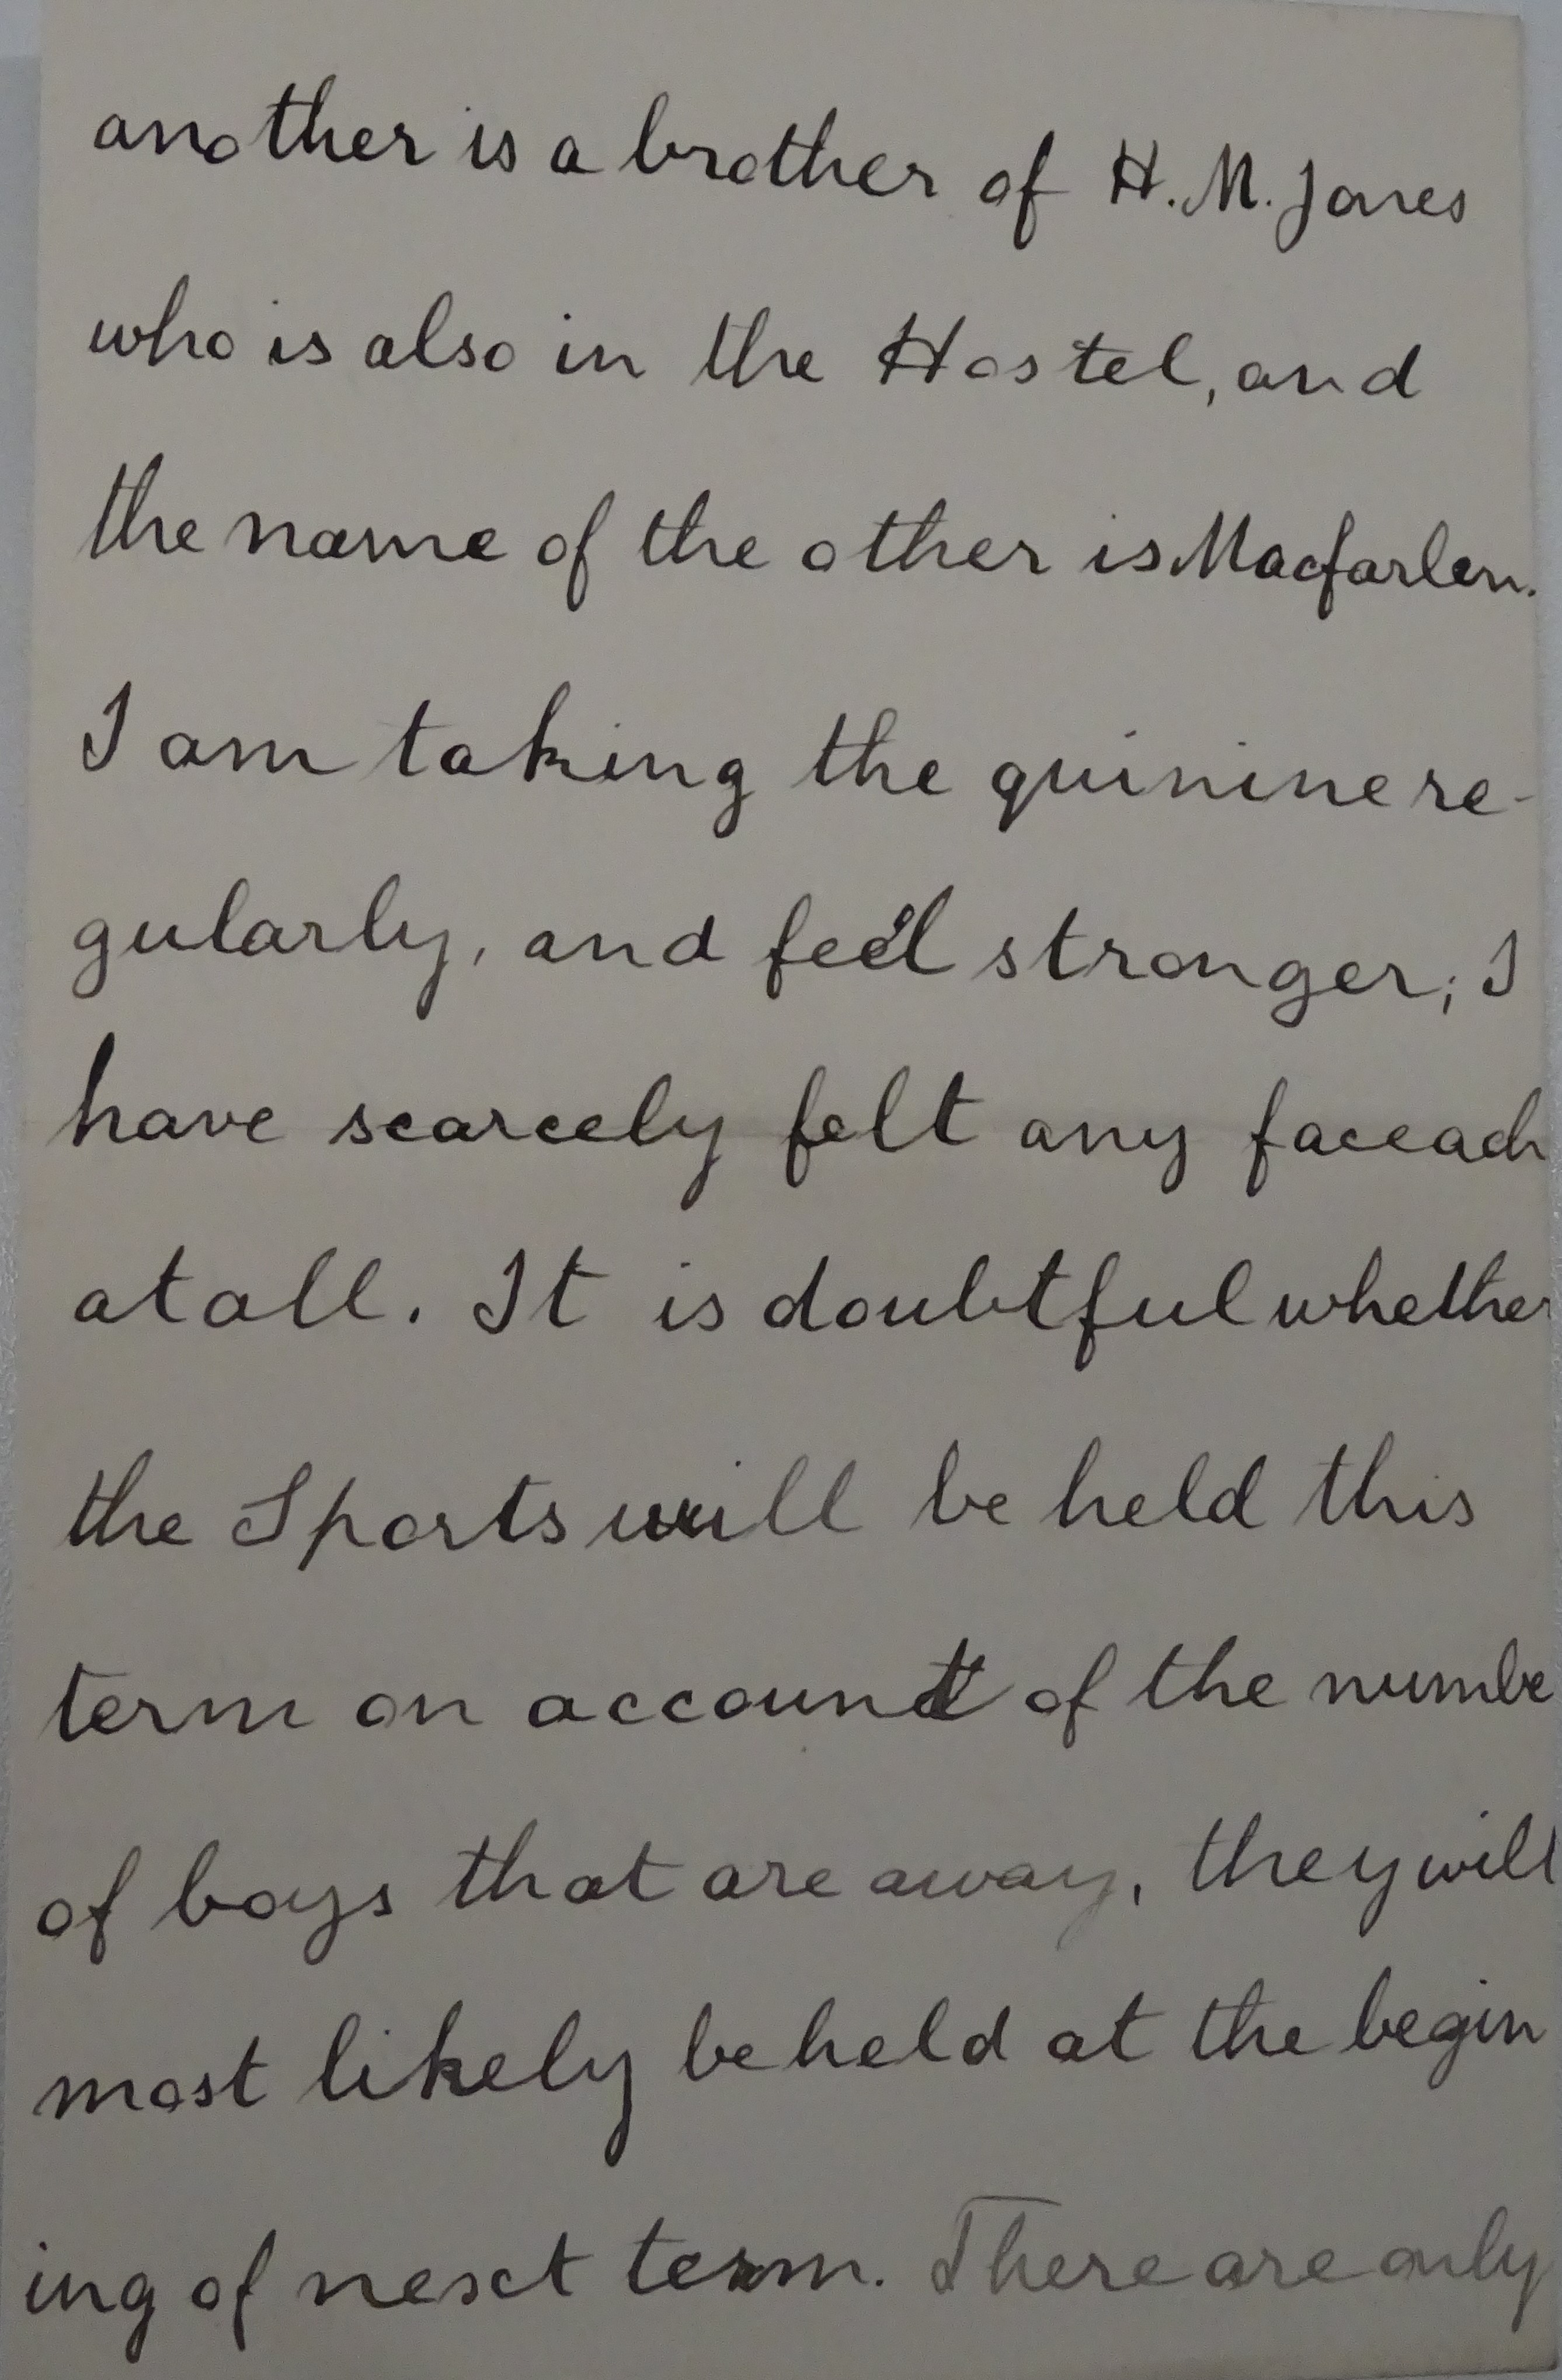 another is a brother of H. M. Jones
who is also in the Hostel, and
the name of the other is Macfarlen.
I am taking the quinine re-
gularly, and feel stronger; I
have scarcely felt any faceach
at all. It is doubtful whether
the Sports will be held this
term on account of the numbe
of boys that are away, they will
most likely be held at the begin
ing of next term. There are only